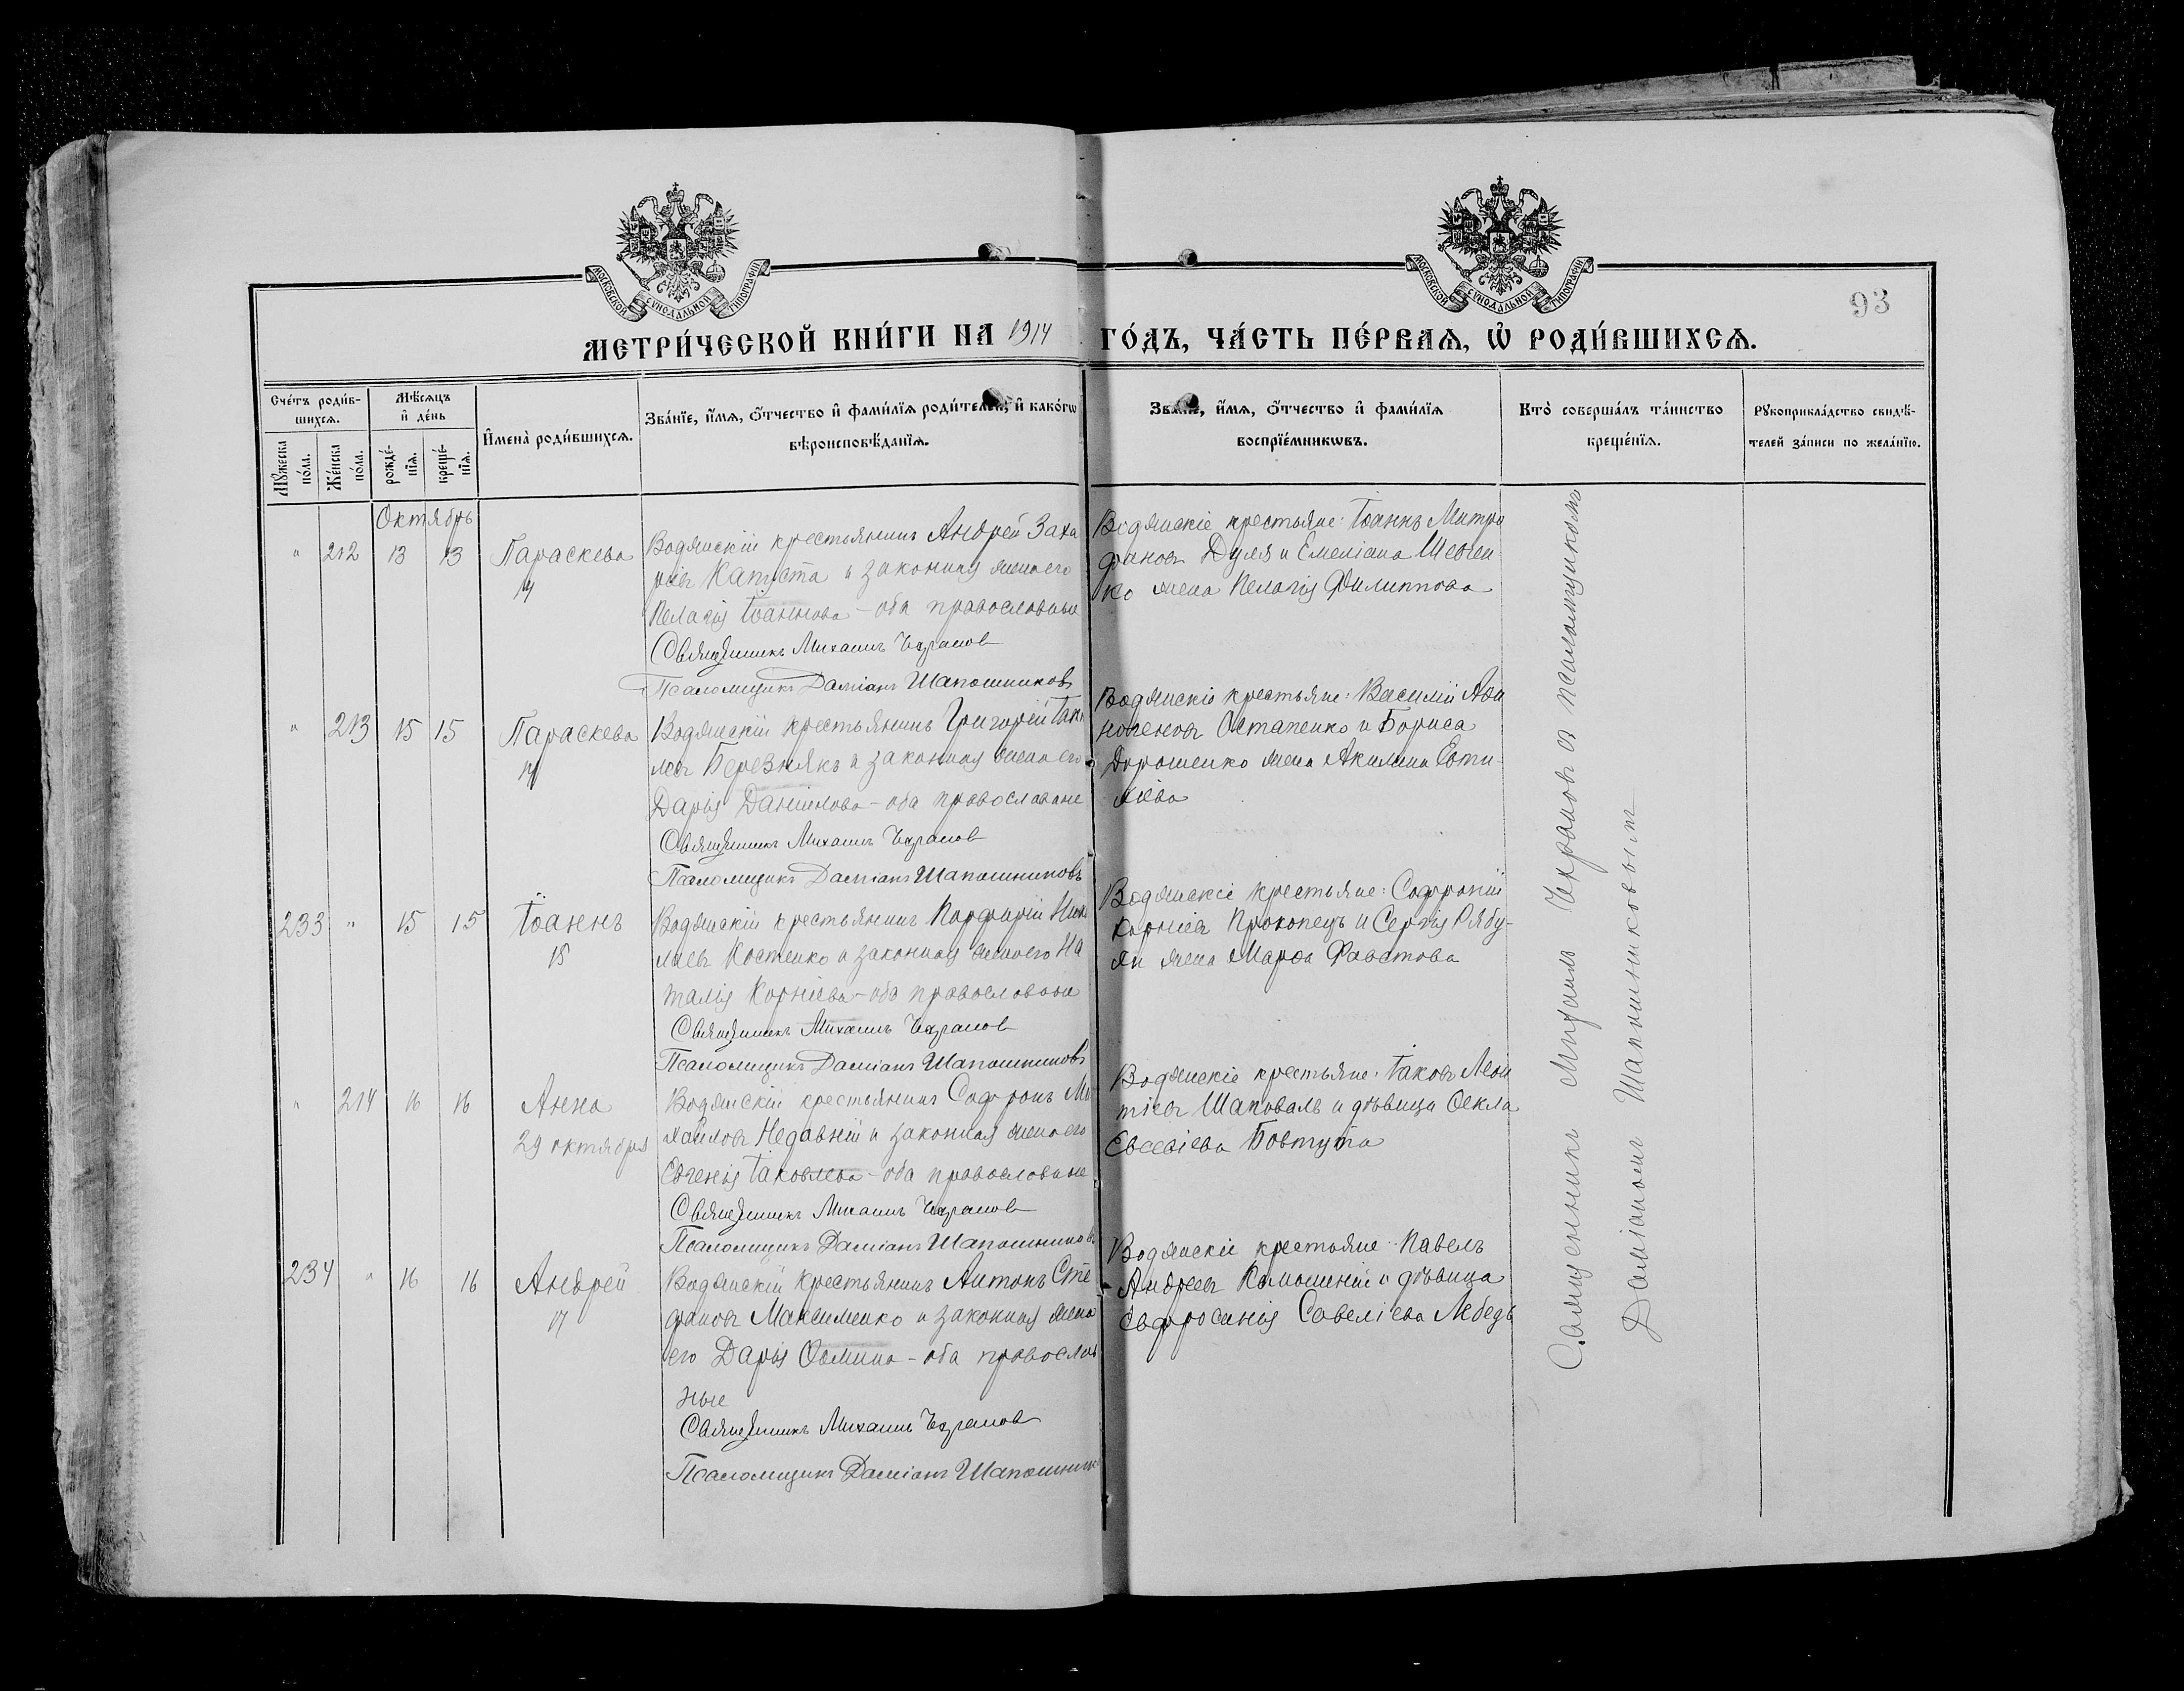 МОСКОВСКОЙ СѴНОДАЛЬНОЙ ТИПОГРАФІИ
МОСКОВСКОЙ СѴНОДАЛЬНОЙ ТИПОГРАФІИ
93
МЕТРИ́ЧЕСКОЙ КНИ́ГИ НА 1914 ГО́ДЪ, ЧА́СТЬ ПЕ́РВАѦ, Ѡ҆ РОДИ́ВШИХСѦ.
Сче́тъ роди́в-
шихсѧ.
Мꙋ́жеска по́ла.
Же́нска по́ла.
Мѣ́сѧцъ
и҆ де́нь
рожде́-
нїѧ.
креще́-
нїѧ.
И҆мена̀ роди́вшихсѧ.
Зва́нїе, и҆́мѧ, ѻ҆́тчество и҆ фами́лїѧ роди́телей, и҆ како́гѡ
вѣроисповѣ́данїѧ.
Зва́нїе, и҆́мѧ, ѻ҆́тчество и҆ фами́лїѧ
воспрїе́мникѡвъ.
Кто̀ соверша́лъ та́инство
креще́нїѧ.
Рꙋкоприкла́дство свидѣ́-
телей за́писи по жела́нїю.
Октябрь
" 212 13 13 Параскева
14
Водянскій крестьянинъ Андрей Заха
ріевъ Капуста и законная жена его
Пелагія Іоаннова - оба православные
Священникъ Михаилъ
Псаломщикъ Даміанъ Шапошниковъ
Водянскіе крестьяне: Іоаннъ Митро
фановъ Дуля и Емеліана Шевчен-
ко жена Пелагія Филиппова
" 213 15 15 Параскева
14
Водянскій крестьянинъ Григорій Іак
Березнякъ и законная жена его
Дарія Даніилова - оба православные
Священникъ Михаилъ
Псаломщикъ Даміанъ Шапошниковъ
Водянскіе крестьяне: Василій Афи
ногеновъ Остапенко и Бориса
Дорошенко жена Акилина Евти-
хіева
233 " 15 15 Іоаннъ
18
Водянскій крестьянинъ Порфирій
Костенко и законная жена его На
талія Корніева - оба православные
Священникъ Михаилъ
Псаломщикъ Даміанъ Шапошниковъ
Водянскіе крестьяне: Софроній
Корніевъ Прокопецъ и Сергія Рябу-
жена Марфа Фавстова
" 214 16 16 Анна
29 октября
Водянскій крестьянинъ Софронъ Ми
хайловъ Недавній и законная жена его
Евгенія Іаковлева - оба православные
Священникъ Михаилъ
Псаломщикъ Даміанъ Шапошниковъ
Водянскіе крестьяне: Іаковъ Леон
тіевъ Шаповалъ и дѣвица Ѳекла
Евсевіева Бовтута
234 " 16 16 Андрей
17
Водянскій крестьянинъ Антонъ Сте
фановъ Максименко и законная жена
его Дарія Ѳомина - оба православ
ные
Священникъ Михаилъ
Псаломщикъ Даміанъ Шапошник
Водянскіе крестьяне: Павелъ
Андреевъ и дѣвица
Евфросинія Савеліева Лебедь
Священникъ Михаилъ и псаломщикомъ
Даміаномъ Шапошниковымъ